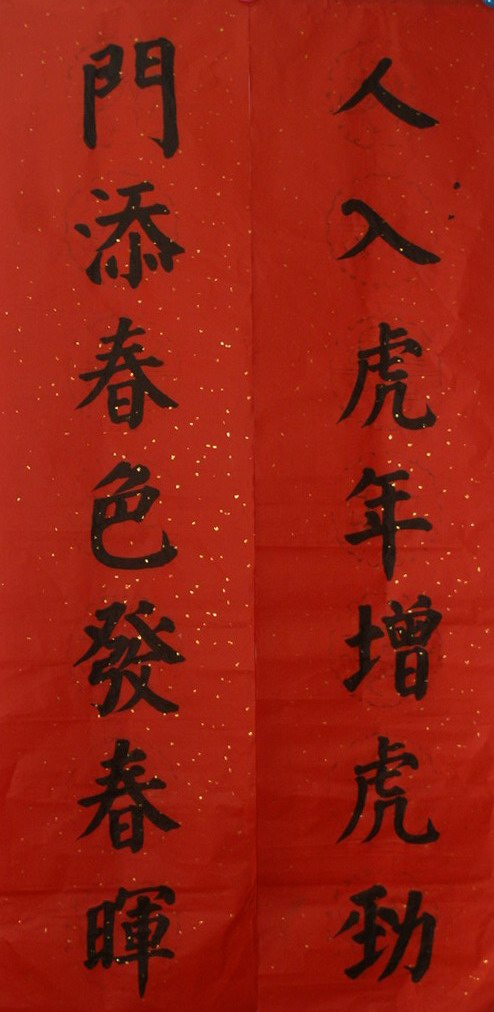 人入虎年增虎勁
門添春色發春暉